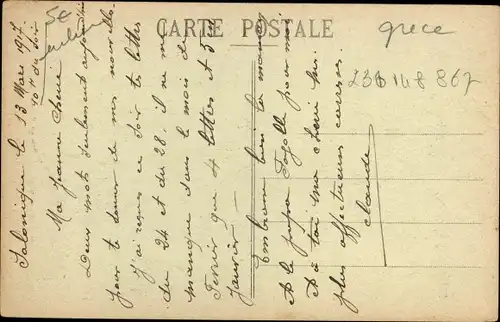 CARTE POSTALE
grece
5e
236 148 867
Salonique le 13 Mars 1917
10h du soir
Ma Jeanne cherie
Deux mots seulement aujourd'hui
pour te donner de mes nouvelles.
J'ai reçues ce soir tes lettres
du 24 et du 28. il ne me
manque dans le mois de
Fevrier que 4 lettres et 3 en
Janvier
Embrasse bien la maman
et le papa pour moi
et à toi ma cherie mes
plus affectueuses caresses.
Claude